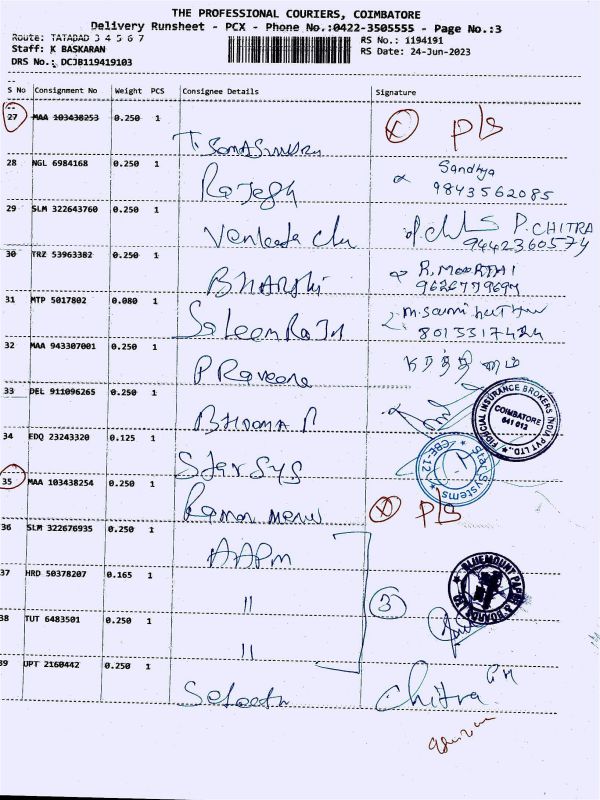 THE PROFESSIONAL COURIERS, COIMBATORE
Delivery Runsheet - PCX - Phone No.:0422-3505555 - Page No.:3
Route: TATABAD 3 4 5 6 7
RS No.: 1194191
Staff: K BASKARAN
RS Date: 24-Jun-2023
DRS No.: DCJB119419103
S No Consignment No Weight PCS Consignee Details Signature
27 MAA 103438253 0.250 1 P/S
28 NGL 6984168 0.250 1 Rajesh Sandhya
9843562085
29 SLM 322643760 0.250 1 Venkata P. CHITRA
9442360574
30 TRZ 53963382 0.250 1 BHARathi R. MOORTHI
31 MTP 5017802 0.080 1 SaleemRaja
32 MAA 943307001 0.250 1 PRaveena
33 DEL 911096265 0.250 1
FIDUCIAL INSURANCE BROKERS INDIA PVT LTD.,
COIMBATORE
641 012
34 EDQ 23243320 0.125 1 Star SYS
Star Systems
CBE-12
35 MAA 103438254 0.250 1 P/S
36 SLM 322676935 0.250 1 AAPM
37 HRD 50378207 0.165 1 " 3
BLUEMOUNT PAPER & BOARDS
38 TUT 6483501 0.250 1 "
39 UPT 2160442 0.250 1 Chitra